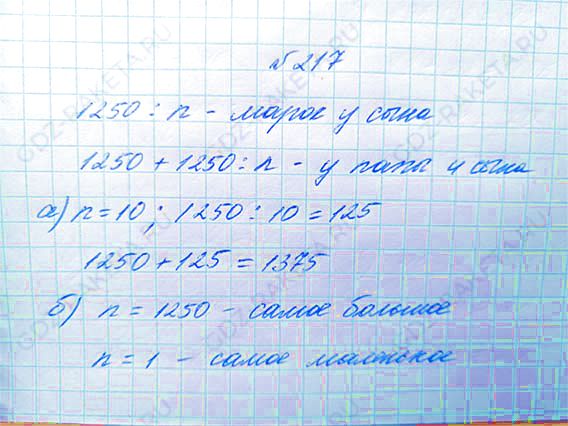 № 217
1250 : n - марок у сына
1250 + 1250 : n - у папы и сына
а) n = 10 ; 1250 : 10 = 125
1250 + 125 = 1375
б) n = 1250 - самое большое
n = 1 - самое маленькое
GDZ-RAKETA.RU